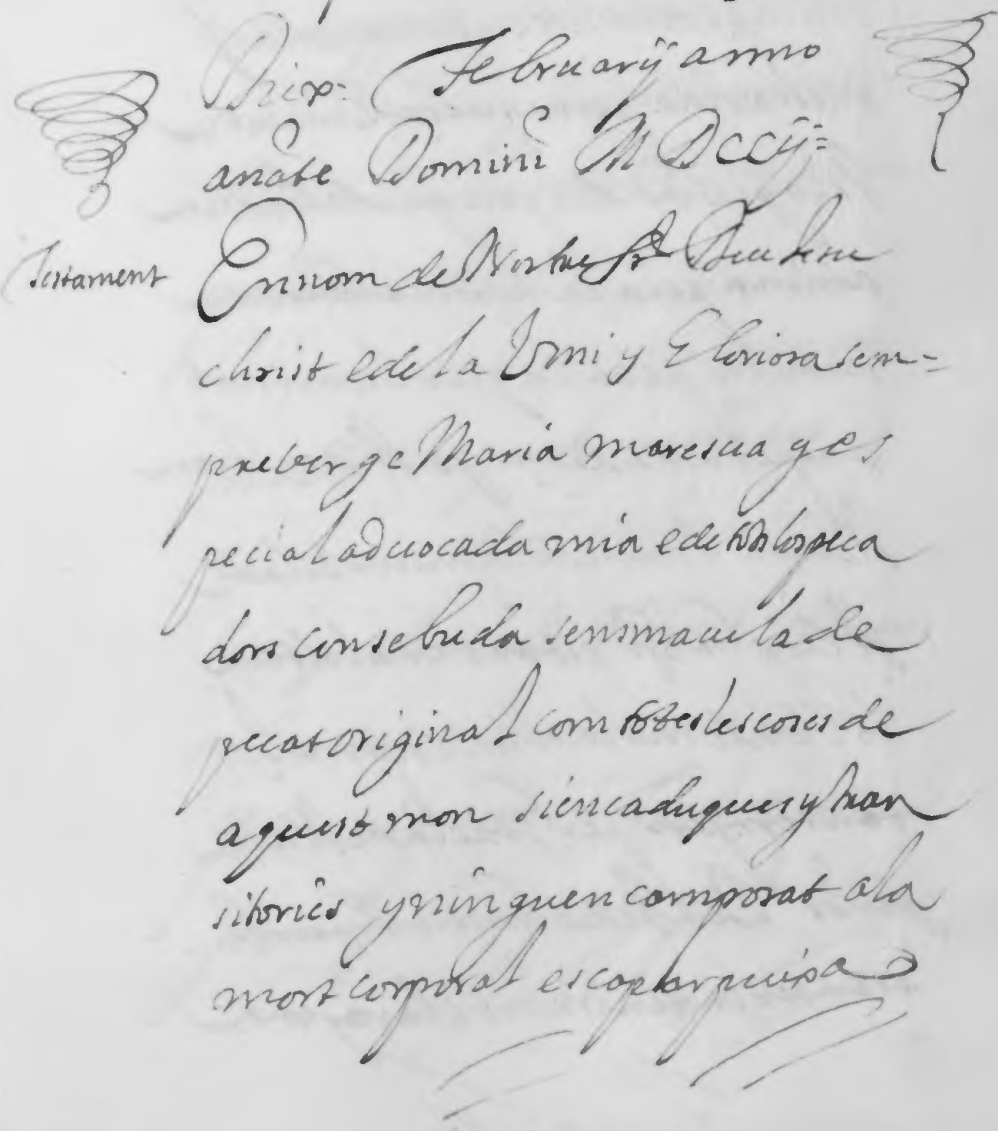 Die ix: Februarij anno
anate Domini M DCCij=
Testament
En nom de Nostre Sr Deu Jesu
christ e de la Umi y Gloriosa sem=
pre berge Maria mare sua y es
pecial aduocada mia e de tots los peca
dors consebuda sens macula de
pecat original com totes les coses de
aquest mon sien caduques y tran
sitories y ningu en carn posat a la
mort corporal escapar puixa